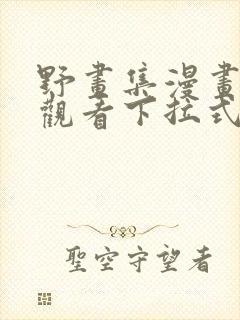 野畫集漫畫
觀看下拉式
聖空守望者